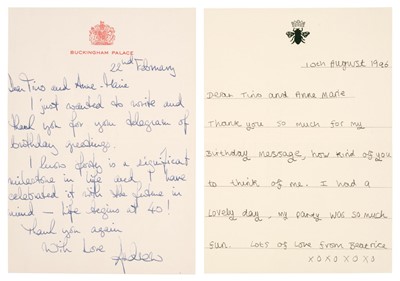 BUCKINGHAM PALACE
22nd February
Dear Tino and Anne-Marie
I just wanted to write and
thank you for your telegram of
birthday greetings.
I know forty is a significant
milestone in life and I have
celebrated it with the future in
mind - Life begins at 40!
Thank you again
With Love
Andrew
10th August 1996
Dear Tino and Anne Marie
Thank you so much for my
Birthday message, how kind of you
to think of me. I had a
lovely day, my party was so much
fun. Lots of Love from Beatrice
xoxoxoxo